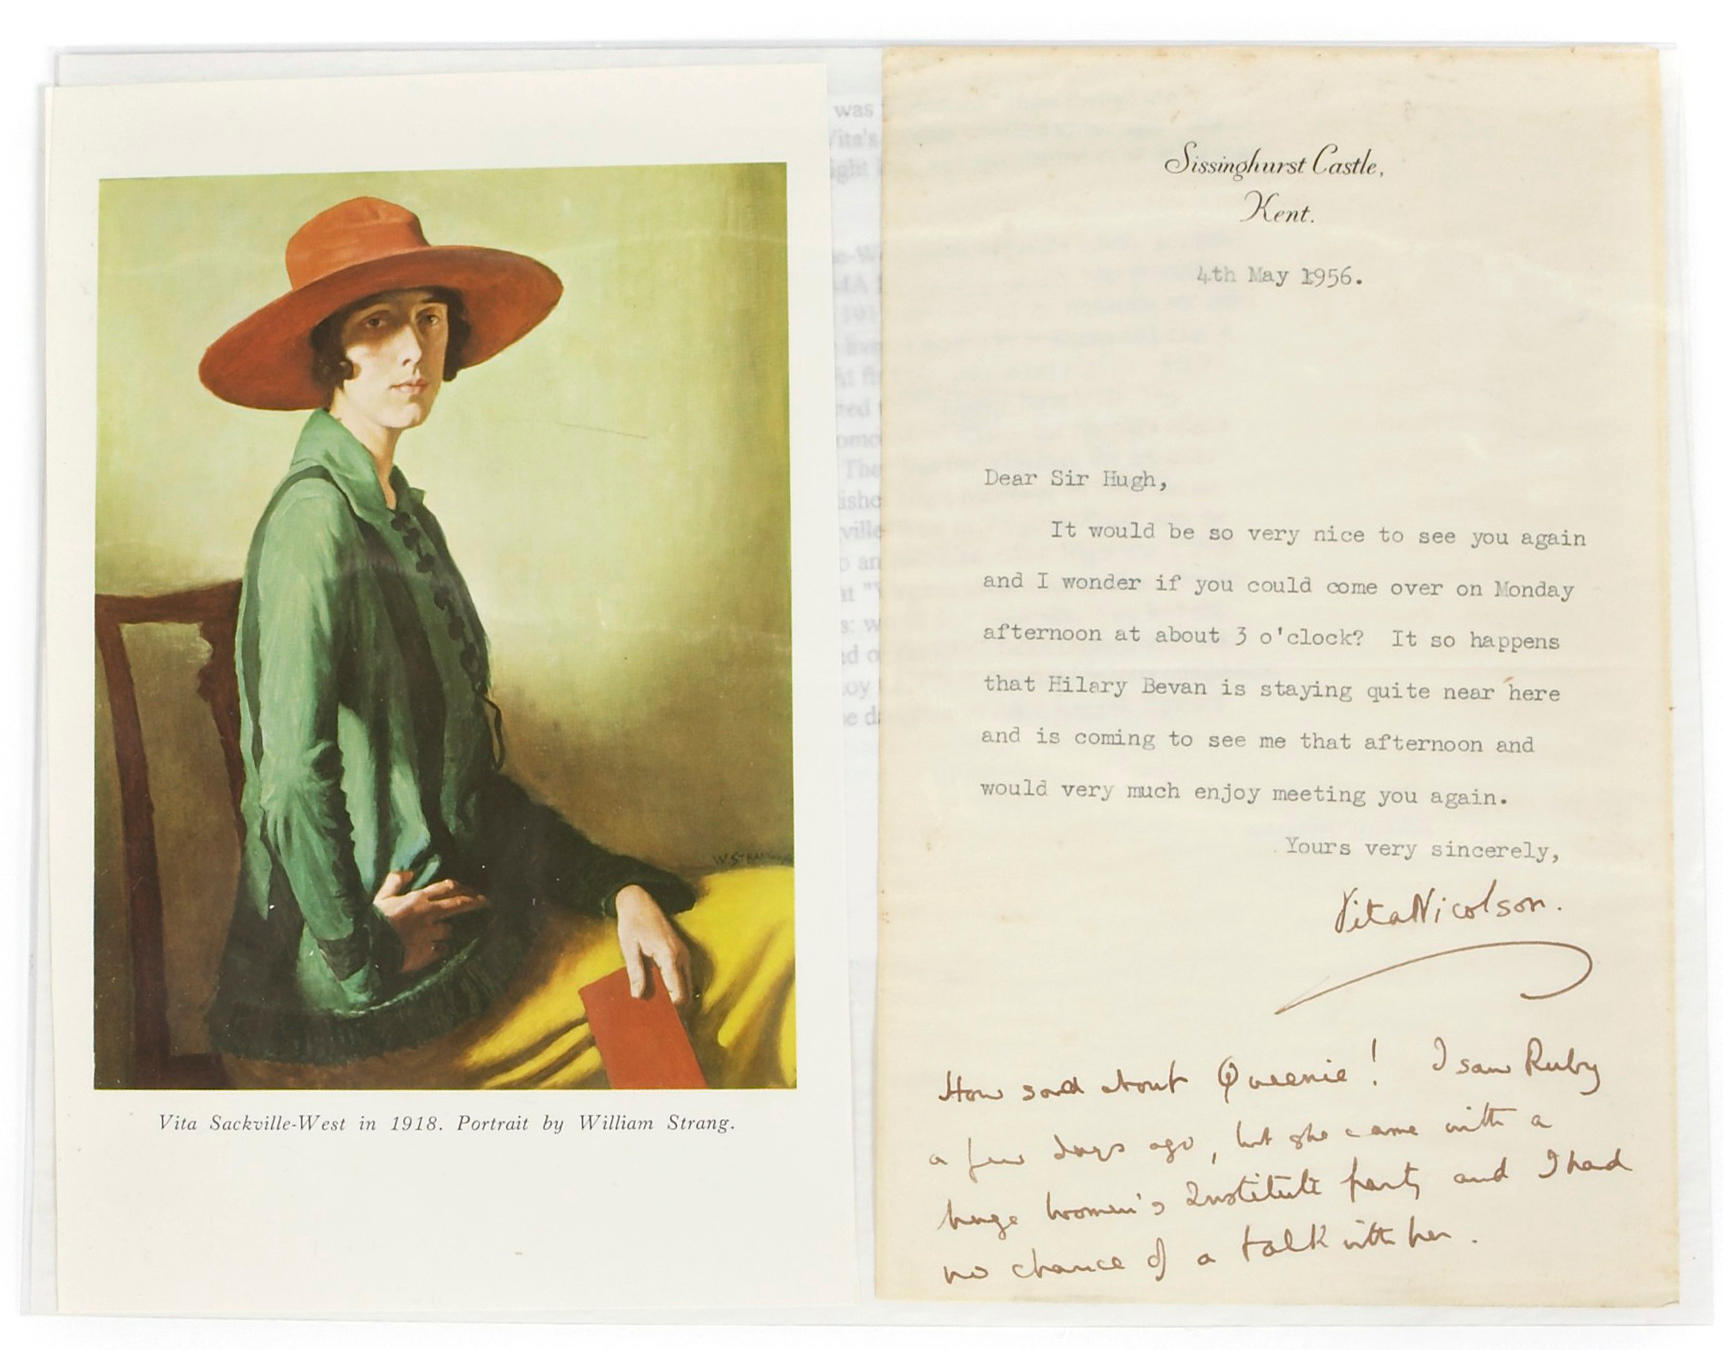 W. STRANG
Vita Sackville-West in 1918. Portrait by William Strang.
was
Vita's
Sissinghurst Castle,
Kent.
4th May 1956.
Dear Sir Hugh,
It would be so very nice to see you again
and I wonder if you could come over on Monday
afternoon at about 3 o'clock? It so happens
that Hilary Bevan is staying quite near here
and is coming to see me that afternoon and
would very much enjoy meeting you again.
Yours very sincerely,
Vita Nicolson.
How sad about Queenie! I saw Ruby
a few days ago, but she came with a
huge Women's Institute party and I had
no chance of a talk with her.